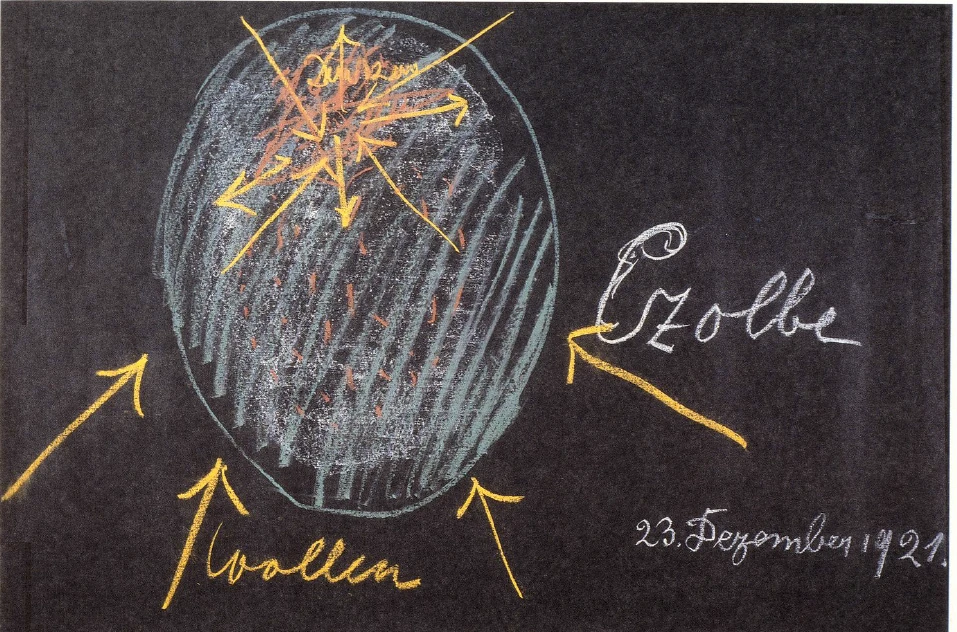 Czolbe
23. Dezember 1921.
Wollen